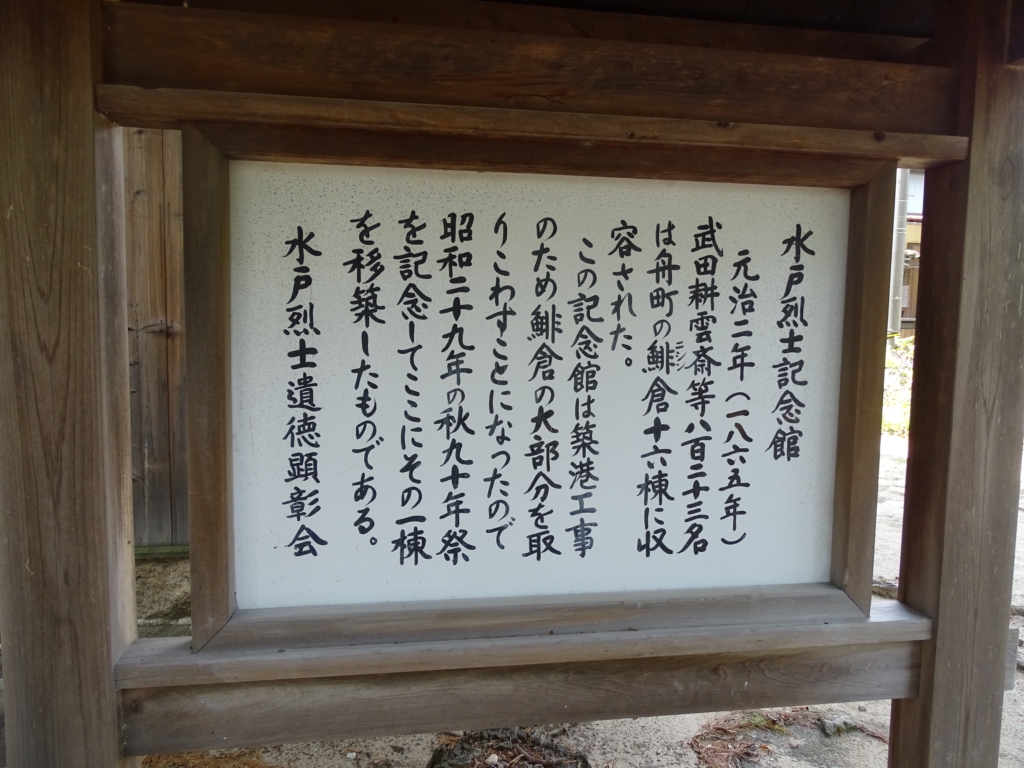 水戸烈士記念館
元治二年（一八六五年）
武田耕雲斎等八百二十三名
は舟町の鯡倉十六棟に収
ニシン
容された。
この記念館は築港工事
のため鯡倉の大部分を取
りこわすことになったので
昭和二十九年の秋九十年祭
を記念してここにその一棟
を移築したものである。
水戸烈士遺徳顕彰会